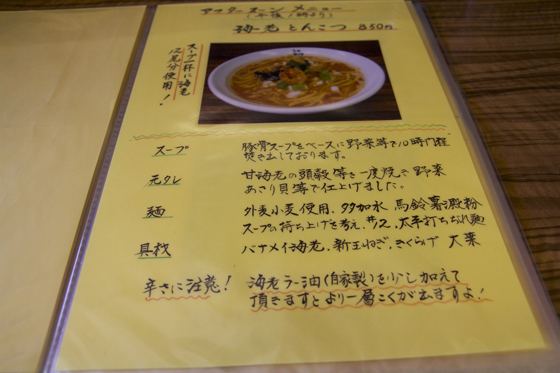 アフターヌーン メニュー
(午後1時より)
海老とんこつ 850円
スープ一杯に海老
12尾分使用!
スープ
豚骨スープをベースに野菜等で10時間程
焚き出しております。
元タレ
甘海老の頭殻等を一度焼き野菜
あさり貝等で仕上げました。
麺
外麦小麦使用、多加水 馬鈴薯澱粉
スープの持ち上げを考え、#12、太平打ちちぢれ麺
具材
バナメイ海老、新玉ねぎ、きくらげ 大葉
辛さに注意!
海老ラー油(自家製)を少し加えて
頂きますとより一層こくが出ますよ!